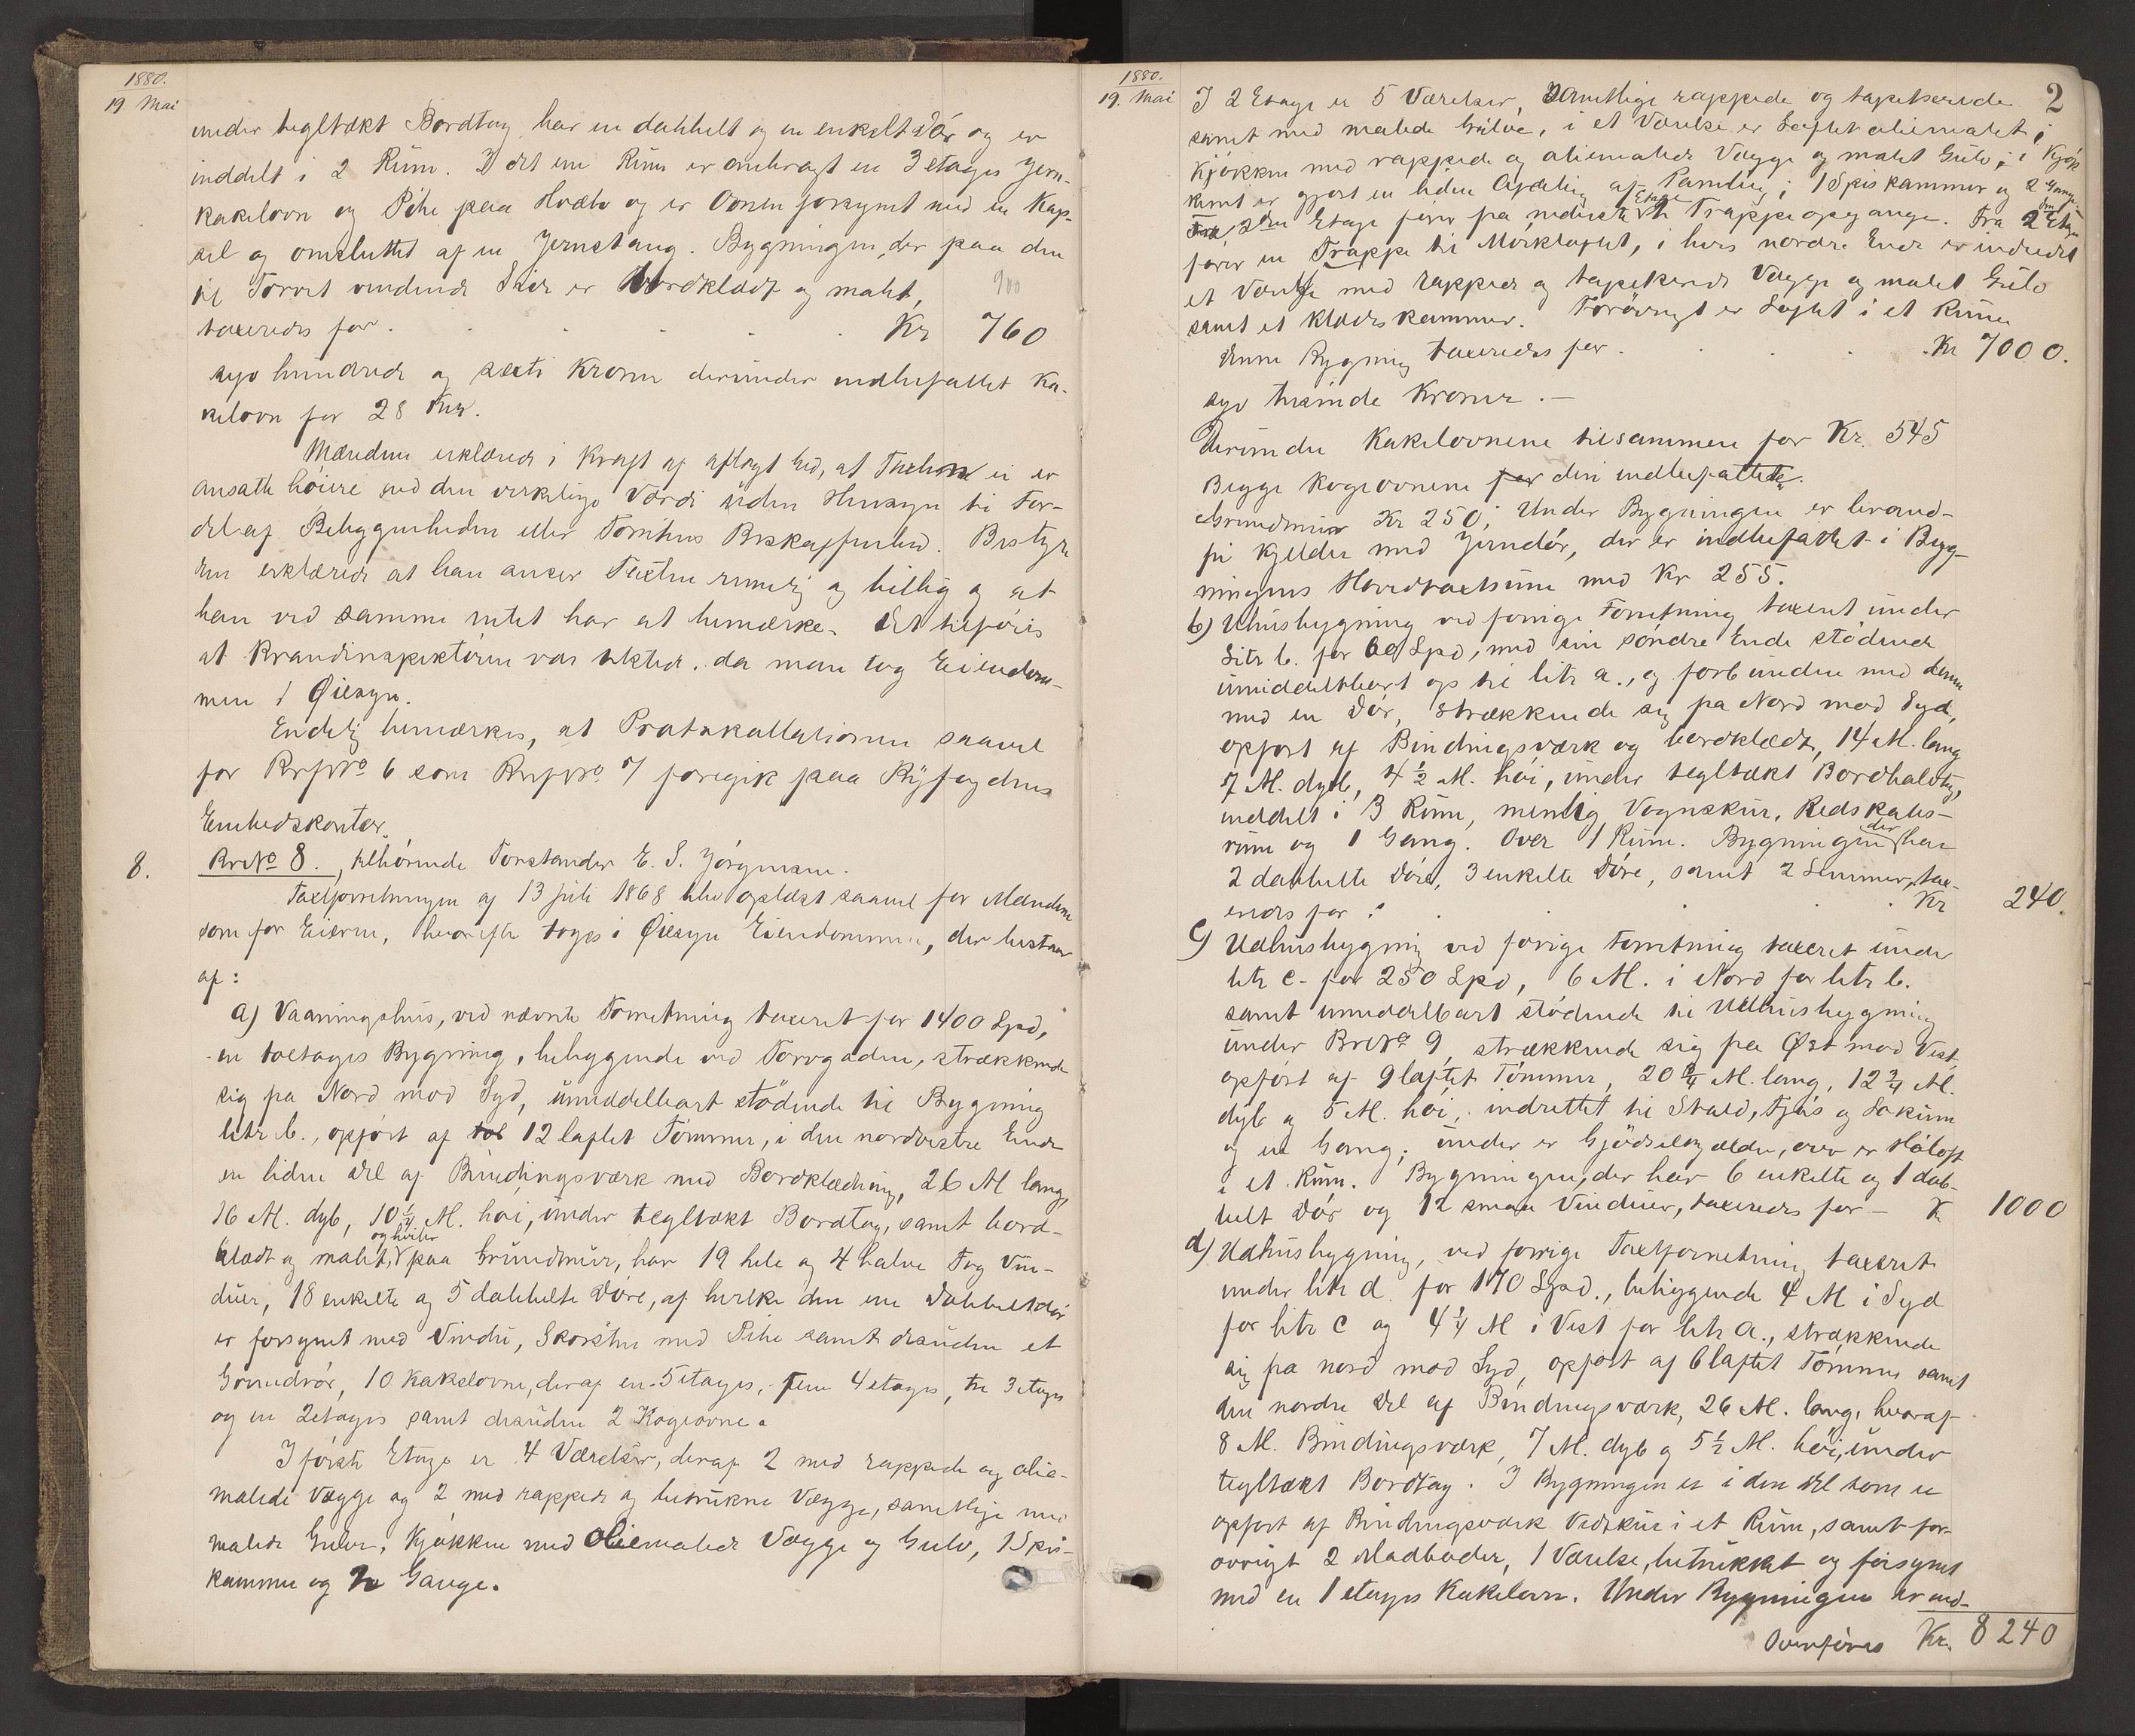 1880.
19 Mai
under tegltækt Bordtag, har en dobbelt og en enkelt Dör og er
inddelt i 2 Rum. I det ene Rum er anbragt en 3 etages Jern-
kakelovn og Pibe paa Hvælv og er Ovnen forsynet med en Kap-
sel og omsluttet af en Jernstang. Bygningen, der paa den
til Torvet vendende Side er bordklædt og malet, 900
taxeredes for . . . . . Kr 760
syv hundrede og sexti Kroner derunder indbefattet Ka-
kelovn for 28 Kr.
Mændene erklærede i Kraft af aflagt Ed, at Taxten ei er
ansatte höiere end den virkelige Værdi uden Hensyn til For-
del af Beliggenheden eller Tomtens Beskaffenhed. Besty-
ren erklærede at han anser Taxten rimelig og billig og at
han ved samme intet har at bemærke. Det tilföies
at Brandinspektören var tilstede, da man tog Eiendom-
men i Øiesyn.
Endelig bemærkes, at Protokollationen saavel
for BrfNo 6 som BrfNo 7 foregik paa Ryfogdens
Embedskontor.
8. BrNo 8., tilhörende Forstander E. S. Jörgensen.
Taxtforretningen af 13 Juli 1868 blev oplæst saavel for Mændene
som for Eieren, hvorefter toges i Øiesyn Eiendommen, der bestaar
af:
a) Vaaningshus, ved nævnte Forretning taxeret for 1400 Spd,
en toetages Bygning, beliggende ved Torvgaden, strækkende
sig fra Nord mod Syd, umiddelbart stödende til Bygning
litr b., opfört af tol 12 laftet Tömmer, i den nordvestre Ende
en liden Del af Bindingsværk med Bordklædning, 26 Al lang,
16 Al. dyb, 10 1/4 Al. höi, under tegltækt Bordtag, samt bord-
klædt og malet, og hviler paa Grundmur, har 19 hele og 4 halve Fag Vin-
duer, 18 enkelte og 5 dobbelte Döre, af hvilke den ene Dobbeltdör
er forsynet med Vindu, Skorsten med Pibe samt desuden et
, 10 Kakelovne, deraf en 5 etages, fem 4 etages, tre 3 etages
og en 2 etages samt desuden 2 Kogeovne.
I förste Etage er 4 Værelser, deraf 2 med rappede og olie-
malede Vægge og 2 med rappede og betrukne Vægge, samtlige med
malede Gulve, Kjökken med Oliemalede Vægge og Gulv, 1 Spis-
kammer og 2 Gange.
1880.
19. Mai
2
I 2 Etage er 5 Værelser, Samtlige rappede og tapetserede
samt med malede Gulve, i et Værelse er Loftet oliemalet;
Kjökken med rappede og oliemalede Vægge og malet Gulv; i Kjök
kenet er gjort en liden Afdeling af Panling; 1 Spiskammer og 2 Gange.
Fra 2den Etage förer fra nederste Etage to Trappeopgange. Fra 2den Etage
förer en Trappe til Mörkloftet, i hvis nordre Ende er indredet
et Værelse med rappede og tapetserede Vægge og malet Gulv
samt et Klædeskammer. Forövrigt er Loftet i et Rum
denne Bygning taxeredes for . . . . Kr 7000.
syv tusinde Kroner. —
Derunder Kakelovnene tilsammen for Kr. 545
Begge Kogeovnene for deri indbefattede.
Grundmur Kr 250; Under Bygningen er brand-
fri Kjelder med Jerndör, der er indbefattet i Byg-
ningens Hovedtaxtsum med Kr 255.
b) Udhusbygning ved forrige Forretning taxeret under
Litr b. for 60 Spd, med sin söndre Ende stödende
umiddelbart op til litr a., og forbunden med denne
med en Dör, strækkende sig fra Nord mod Syd,
opfört af Bindingsværk og bordklædt, 14 Al. lang
7 Al. dyb, 4 1/2 Al. höi, under tegltækt Bordhalvtag,
inddelt i 3 Rum, nemlig Vognskur, Redskabs-
rum og 1 Gang. Over 1 Rum. Bygningen der har
2 dobbelte Döre, 3 enkelte Döre, samt 2 Lemmer, tax-
eredes for . . . . . Kr 240.
c) Udhusbygning ved forrige Forretning taxeret under
litr c. for 250 Spd, 6 Al. i Nord for litr b.
samt umiddelbart stödende til Udhusbygning
under BrNo 9, strækkende sig fra Øst mod Vest,
opfört af 9 laftet Tömmer, 20 3/4 Al. lang, 12 3/4 Al.
dyb og 5 Al. höi, indrettet til Stald, Fjös og Lokum
og en Gang; under er Gjödselkjælder, over er Höloft
i et Rum. Bygningen, der har 6 enkelte og 1 dob-
belt Dör og 12 smaa Vinduer, taxeredes for — Kr 1000
d) Udhusbygning, ved forrige Taxtforretning taxeret
under litr d. for 170 Spd., beliggende 4 Al i Syd
for litr c og 4 1/4 Al i Vest for litr a., strækkende
sig fra nord mod Syd, opfört af 6 laftet Tömmer samt
den nordre Del af Bindingsværk, 26 Al. lang, hvoraf
8 Al. Bindingsværk, 7 Al. dyb og 5 1/2 Al. höi, under
tegltækt Bordtag. I Bygningen er i den Del som er
opfört af Bindingsværk Vedskur i et Rum, samt for-
övrigt 2 Madboder, 1 Værelse, betrukket og forsynet
med en 1 etages Kakelovn. Under Bygningen er ind-
Overföres Kr. 8240